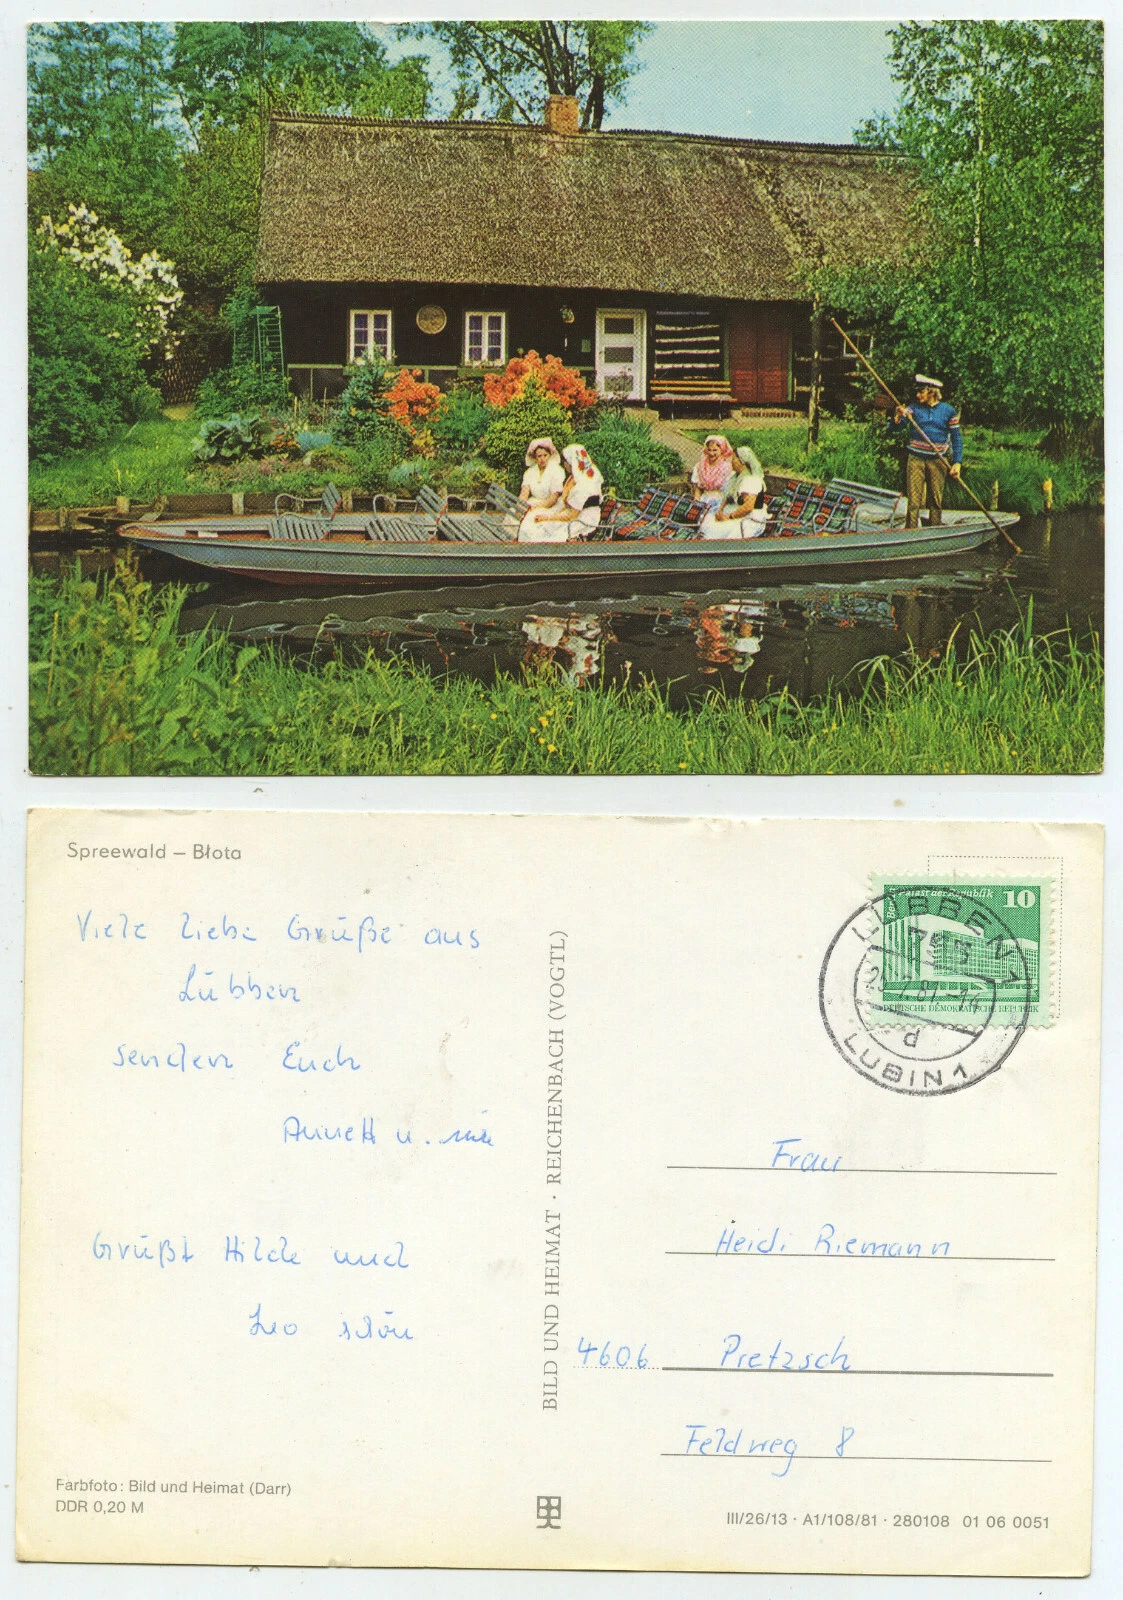 Spreewald – Błota
Viele liebe Grüße aus
Lübben
senden Euch
Annett u.
Grüßt Hilde und
Leo schön
Farbfoto: Bild und Heimat (Darr)
DDR 0,20 M
BILD UND HEIMAT · REICHENBACH (VOGTL)
Palast der Republik 10
DEUTSCHE DEMOKRATISCHE REPUBLIK
LÜBBEN 1
LUBIN 1
d
Frau
Heidi Riemann
4606 Pretzsch
Feldweg 8
III/26/13 · A1/108/81 · 280108 01 06 0051